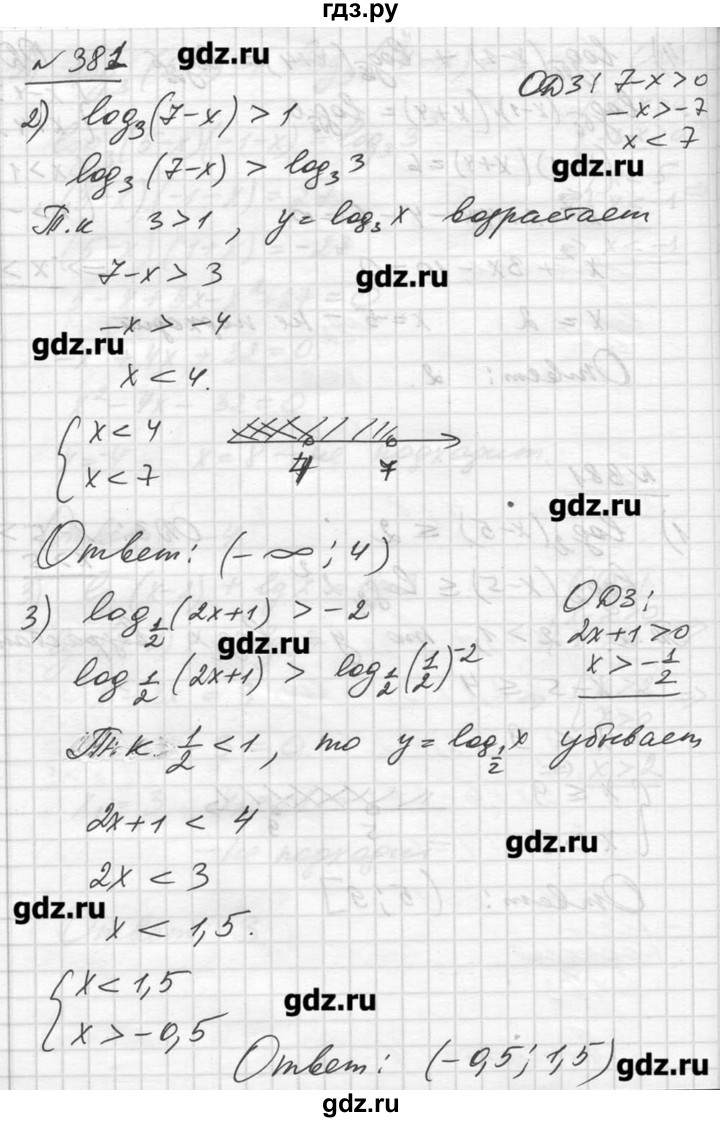 гдз.ру
№ 381
gdz.ru
2) log₃(7-x) > 1
ОДЗ: 7-x > 0
-x > -7
x < 7
log₃(7-x) > log₃3
gdz.ru
Т.к 3 > 1, y = log₃x возрастает
7-x > 3
gdz.ru
-x > -4
gdz.ru
x < 4.
{ x < 4
x < 7
4 7
gdz.ru
Ответ: (-∞; 4)
3) log_{1/2}(2x+1) > -2
ОДЗ:
2x+1 > 0
x > -1/2
gdz.ru
log_{1/2}(2x+1) > log_{1/2}(1/2)^{-2}
Т.к. 1/2 < 1, то y = log_{1/2}x убывает
2x+1 < 4
gdz.ru
2x < 3
gdz.ru
x < 1,5.
{ x < 1,5
x > -0,5
gdz.ru
Ответ: (-0,5; 1,5)
gdz.ru
gdz.ru